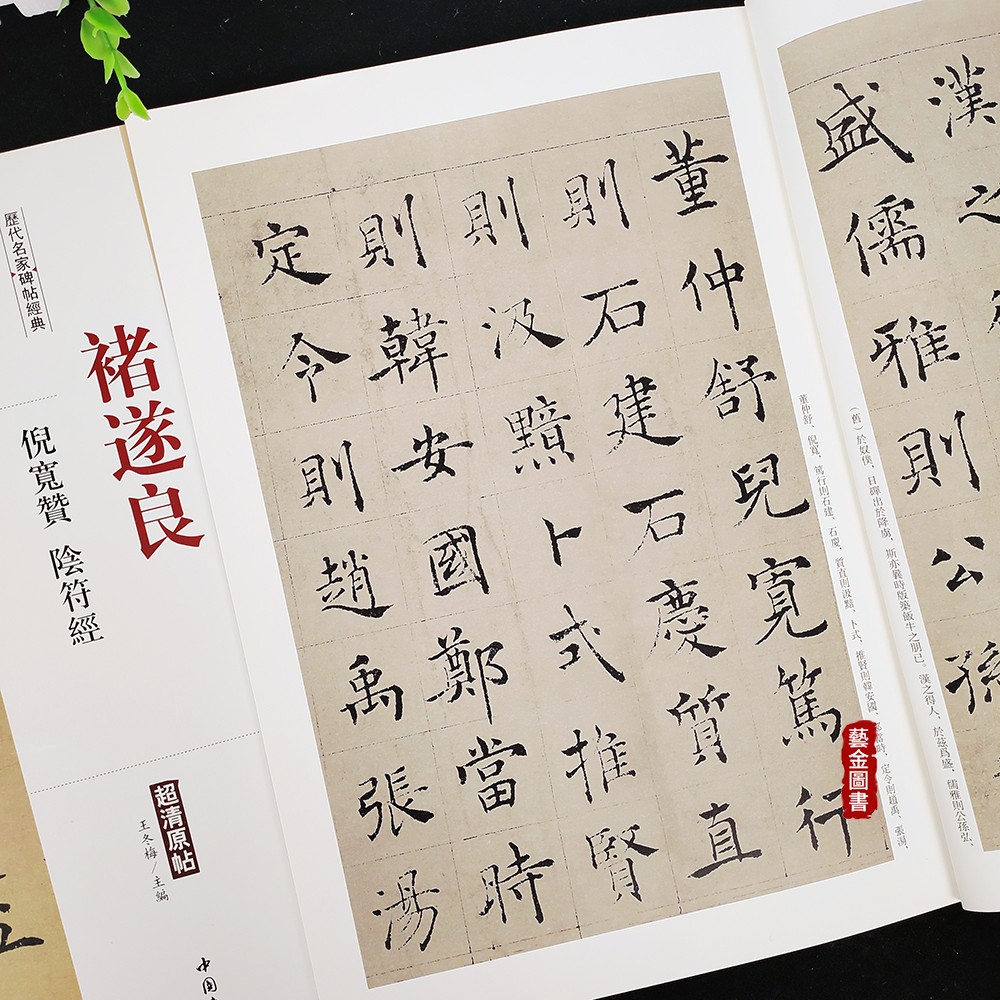 漢之
盛儒雅則公孫
董仲舒兒寬篤行
則石建石慶質直
則汲黯卜式推賢
則韓安國鄭當時
定令則趙禹張湯
（舊）於奴僕，日磾出於降虜，斯亦曩時版築飯牛之朋已。漢之得人，於茲爲盛，儒雅則公孫弘、
董仲舒、倪寬，篤行則石建、石慶，質直則汲黯、卜式，推賢則韓安國、當時，定令則趙禹、張湯，
藝金圖書
歷代名家碑帖經典
褚遂良
倪寬贊 陰符經
超清原帖
王冬梅/主編
中國